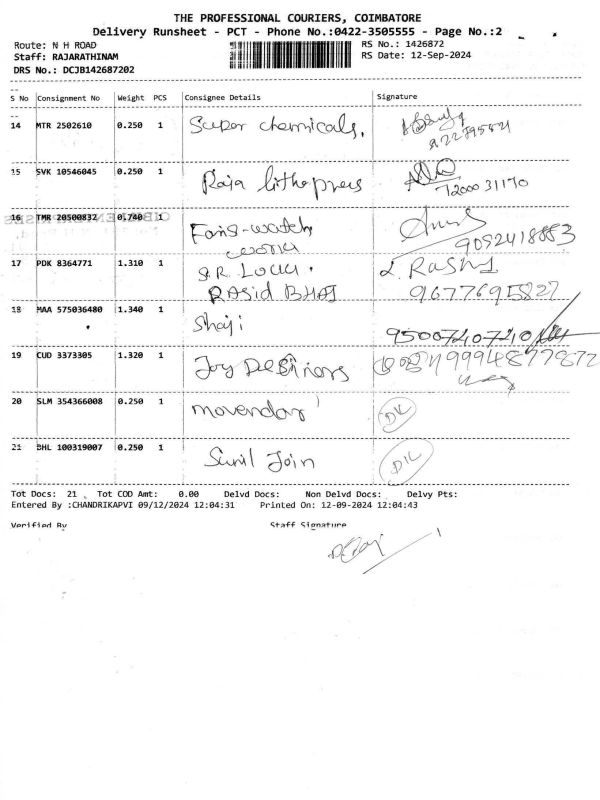 THE PROFESSIONAL COURIERS, COIMBATORE
Delivery Runsheet - PCT - Phone No.:0422-3505555 - Page No.:2
Route: N H ROAD
RS No.: 1426872
Staff: RAJARATHINAM
RS Date: 12-Sep-2024
DRS No.: DCJB142687202
S No Consignment No Weight PCS Consignee Details Signature
14 MTR 2502610 0.250 1 Super chemicals.
15 SVK 10546045 0.250 1 Raja lithopress
7200031170
16 TMR 20500832 0.740 1 Fans-watch
works
9092418883
17 PDK 8364771 1.310 1 S.R. L. Rashi
RASid BHAI 9677695827
18 MAA 575036480 1.340 1 Shaji
95007207210
19 CUD 3373305 1.320 1 Joy Designers
9994877872
20 SLM 354366008 0.250 1 movendar
21 BHL 100319007 0.250 1 Sunil Join
Tot Docs: 21 Tot COD Amt: 0.00 Delvd Docs: Non Delvd Docs: Delvy Pts:
Entered By :CHANDRIKAPVI 09/12/2024 12:04:31 Printed On: 12-09-2024 12:04:43
Verified By Staff Signature